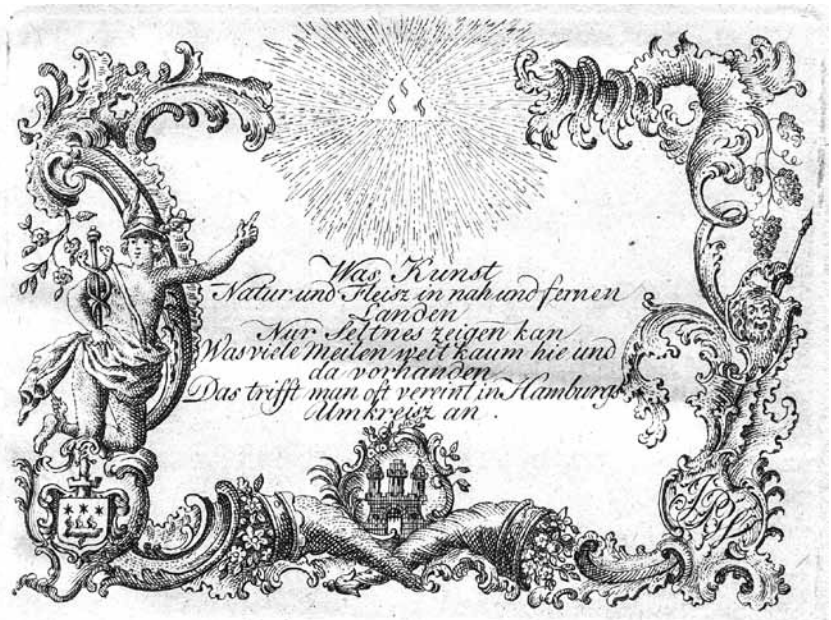 Was Kunst
Natur und Fleisz in nah und fernen
Landen
Nur Seltnes zeigen kan
Was viele Meilen weit kaum hie und
da vorhanden
Das trifft man oft vereint in Hamburgs
Umkreisz an .